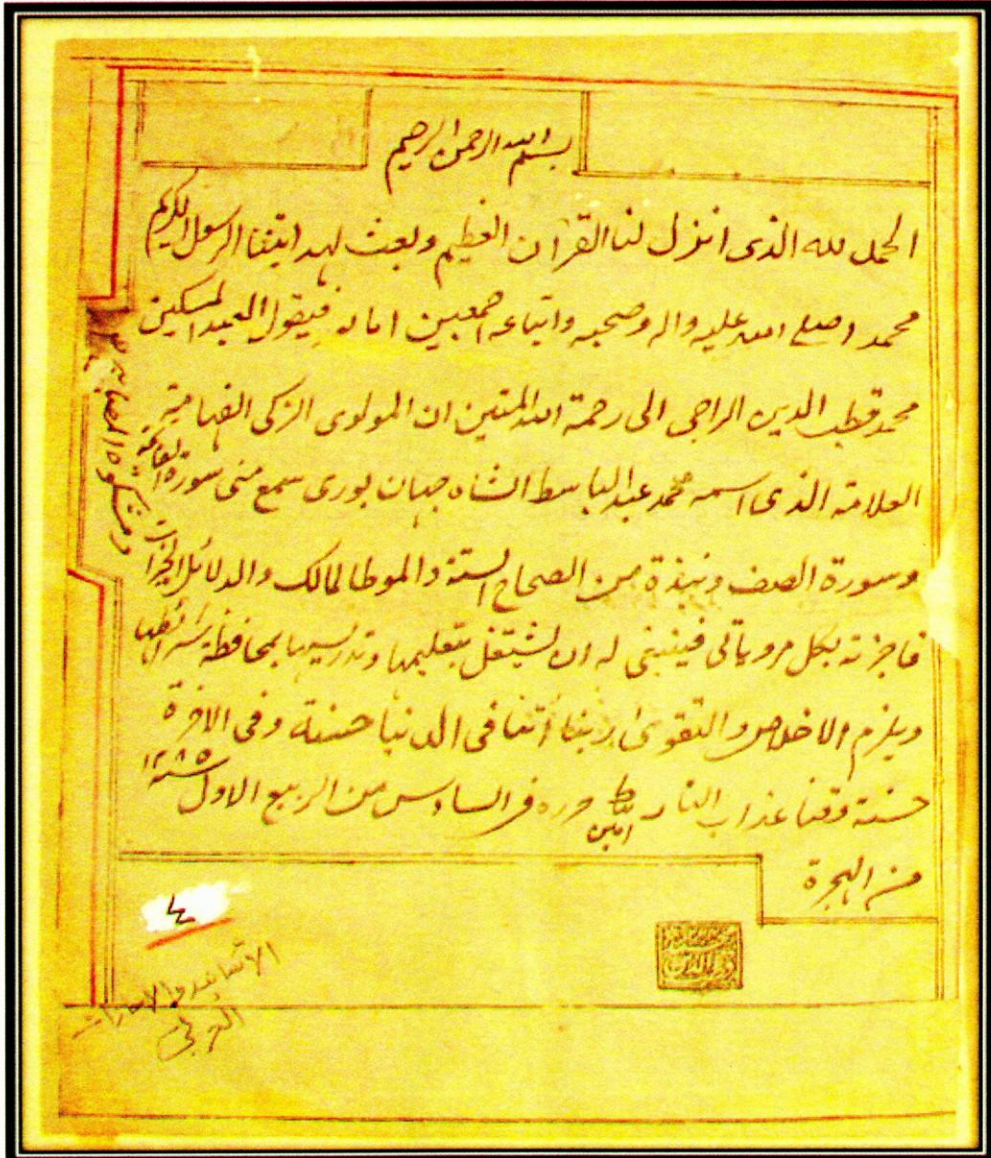 بسم الله الرحمن الرحيم
الحمد لله الذى انزل لنا القرآن العظيم وبعث لهدايتنا الرسول الكريم
محمد اصلے الله عليه واله وصحبه واتباعه اجمعين اما بعد فيقول العبد المسكين
محمد قطب الدين الراجى الى رحمة الله المتين ان المولوى الزكى الفهامة
العلامة الذى اسمه محمد عبد الباسط الشاه جهان بورى سمع منى سورة الفاتحة
وسورة الصف ونبذة من الصحاح الستة والموطا لمالك والدلائل الخيرات
ومشكوة المصابيح
فاجزته بكل مروياتى فينبغى له ان يشتغل بتعليمها وتدريسها بمحافظة شرائطها
ويلزم الاخلاص والتقوى ربنا آتنا فى الدنيا حسنة وفى الاخرة
حسنة وقنا عذاب النار امين حرره فى السادس من الربيع الاول سنة ١٢٨٥
من الهجرة
٤